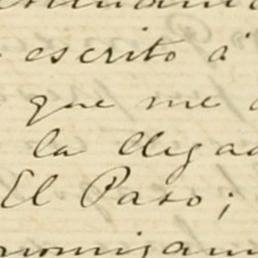 escrito á
que me
la llega
El Paso;